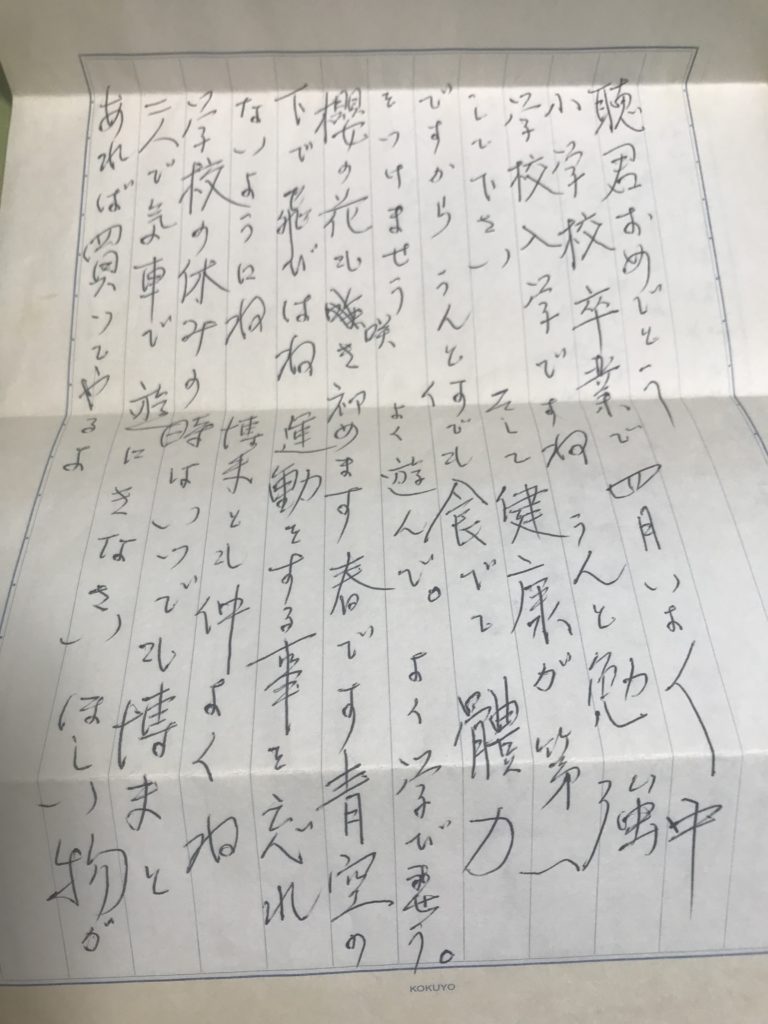 聴君おめでとう
小学校卒業で四月いよ〱中
学校入学ですね うんと勉強
して下さい そして健康が第一
ですから うんと何でも食べて體力
をつけませう よく遊んで。よく学びませう。
櫻の花も咲き初めます春です青空の
下で飛びはね 運動をする事を忘れ
ないようにね 博まとも仲よくね
学校の休みの時はいつでも博まと
二人で気車で遊にきなさい ほしい物が
あれば買ってやるよ
KOKUYO